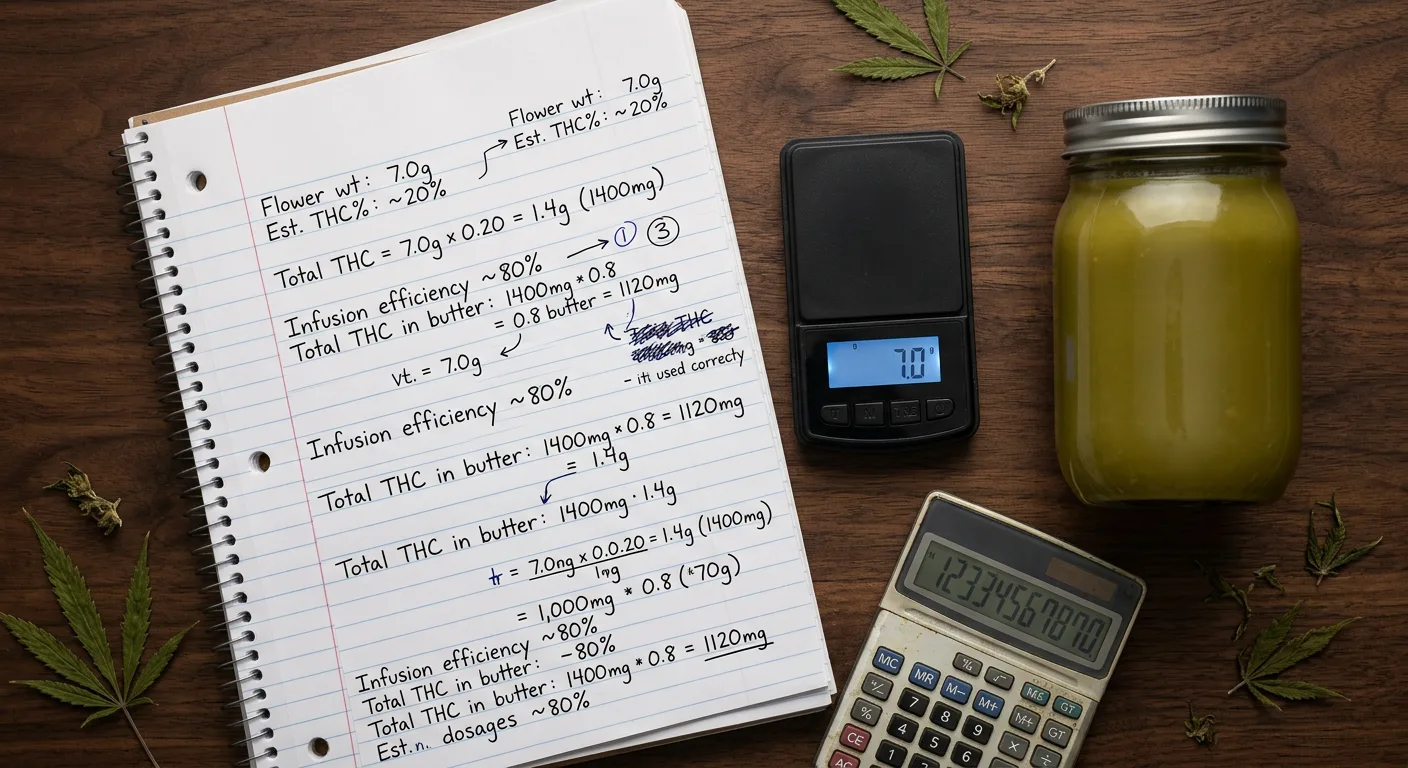 Flower wt: 7.0g
Est. THC%: ~20%
Flower wt: 7.0g
Est. THC%: ~20%
Total THC = 7.0g x 0.20 = 1.4g (1400mg)
Infusion efficiency ~80% → ① ③
Total THC in butter: 1400mg * 0.8
= 0.8 butter = 1120mg
vt. = 7.0g
- iti used correcty
Infusion efficiency ~80%
Total THC in butter: 1400mg * 0.8 = 1120mg
= 1.4g
Total THC in butter: 1400mg · 1.4g
tr = 7.0ng x 0.0.20 = 1.4g (1400mg)
= 1,000mg * 0.8 (*70g)
Infusion efficiency ~80%
Total THC in butter: -80%
Total THC in butter: 1400mg * 0.8 = 1120mg
Est.n. dosages ~80%
7.0 g
MC
MR
M-
M+
GT
%
7
8
9
M+
GT
CE
4
5
6
×
÷
AC